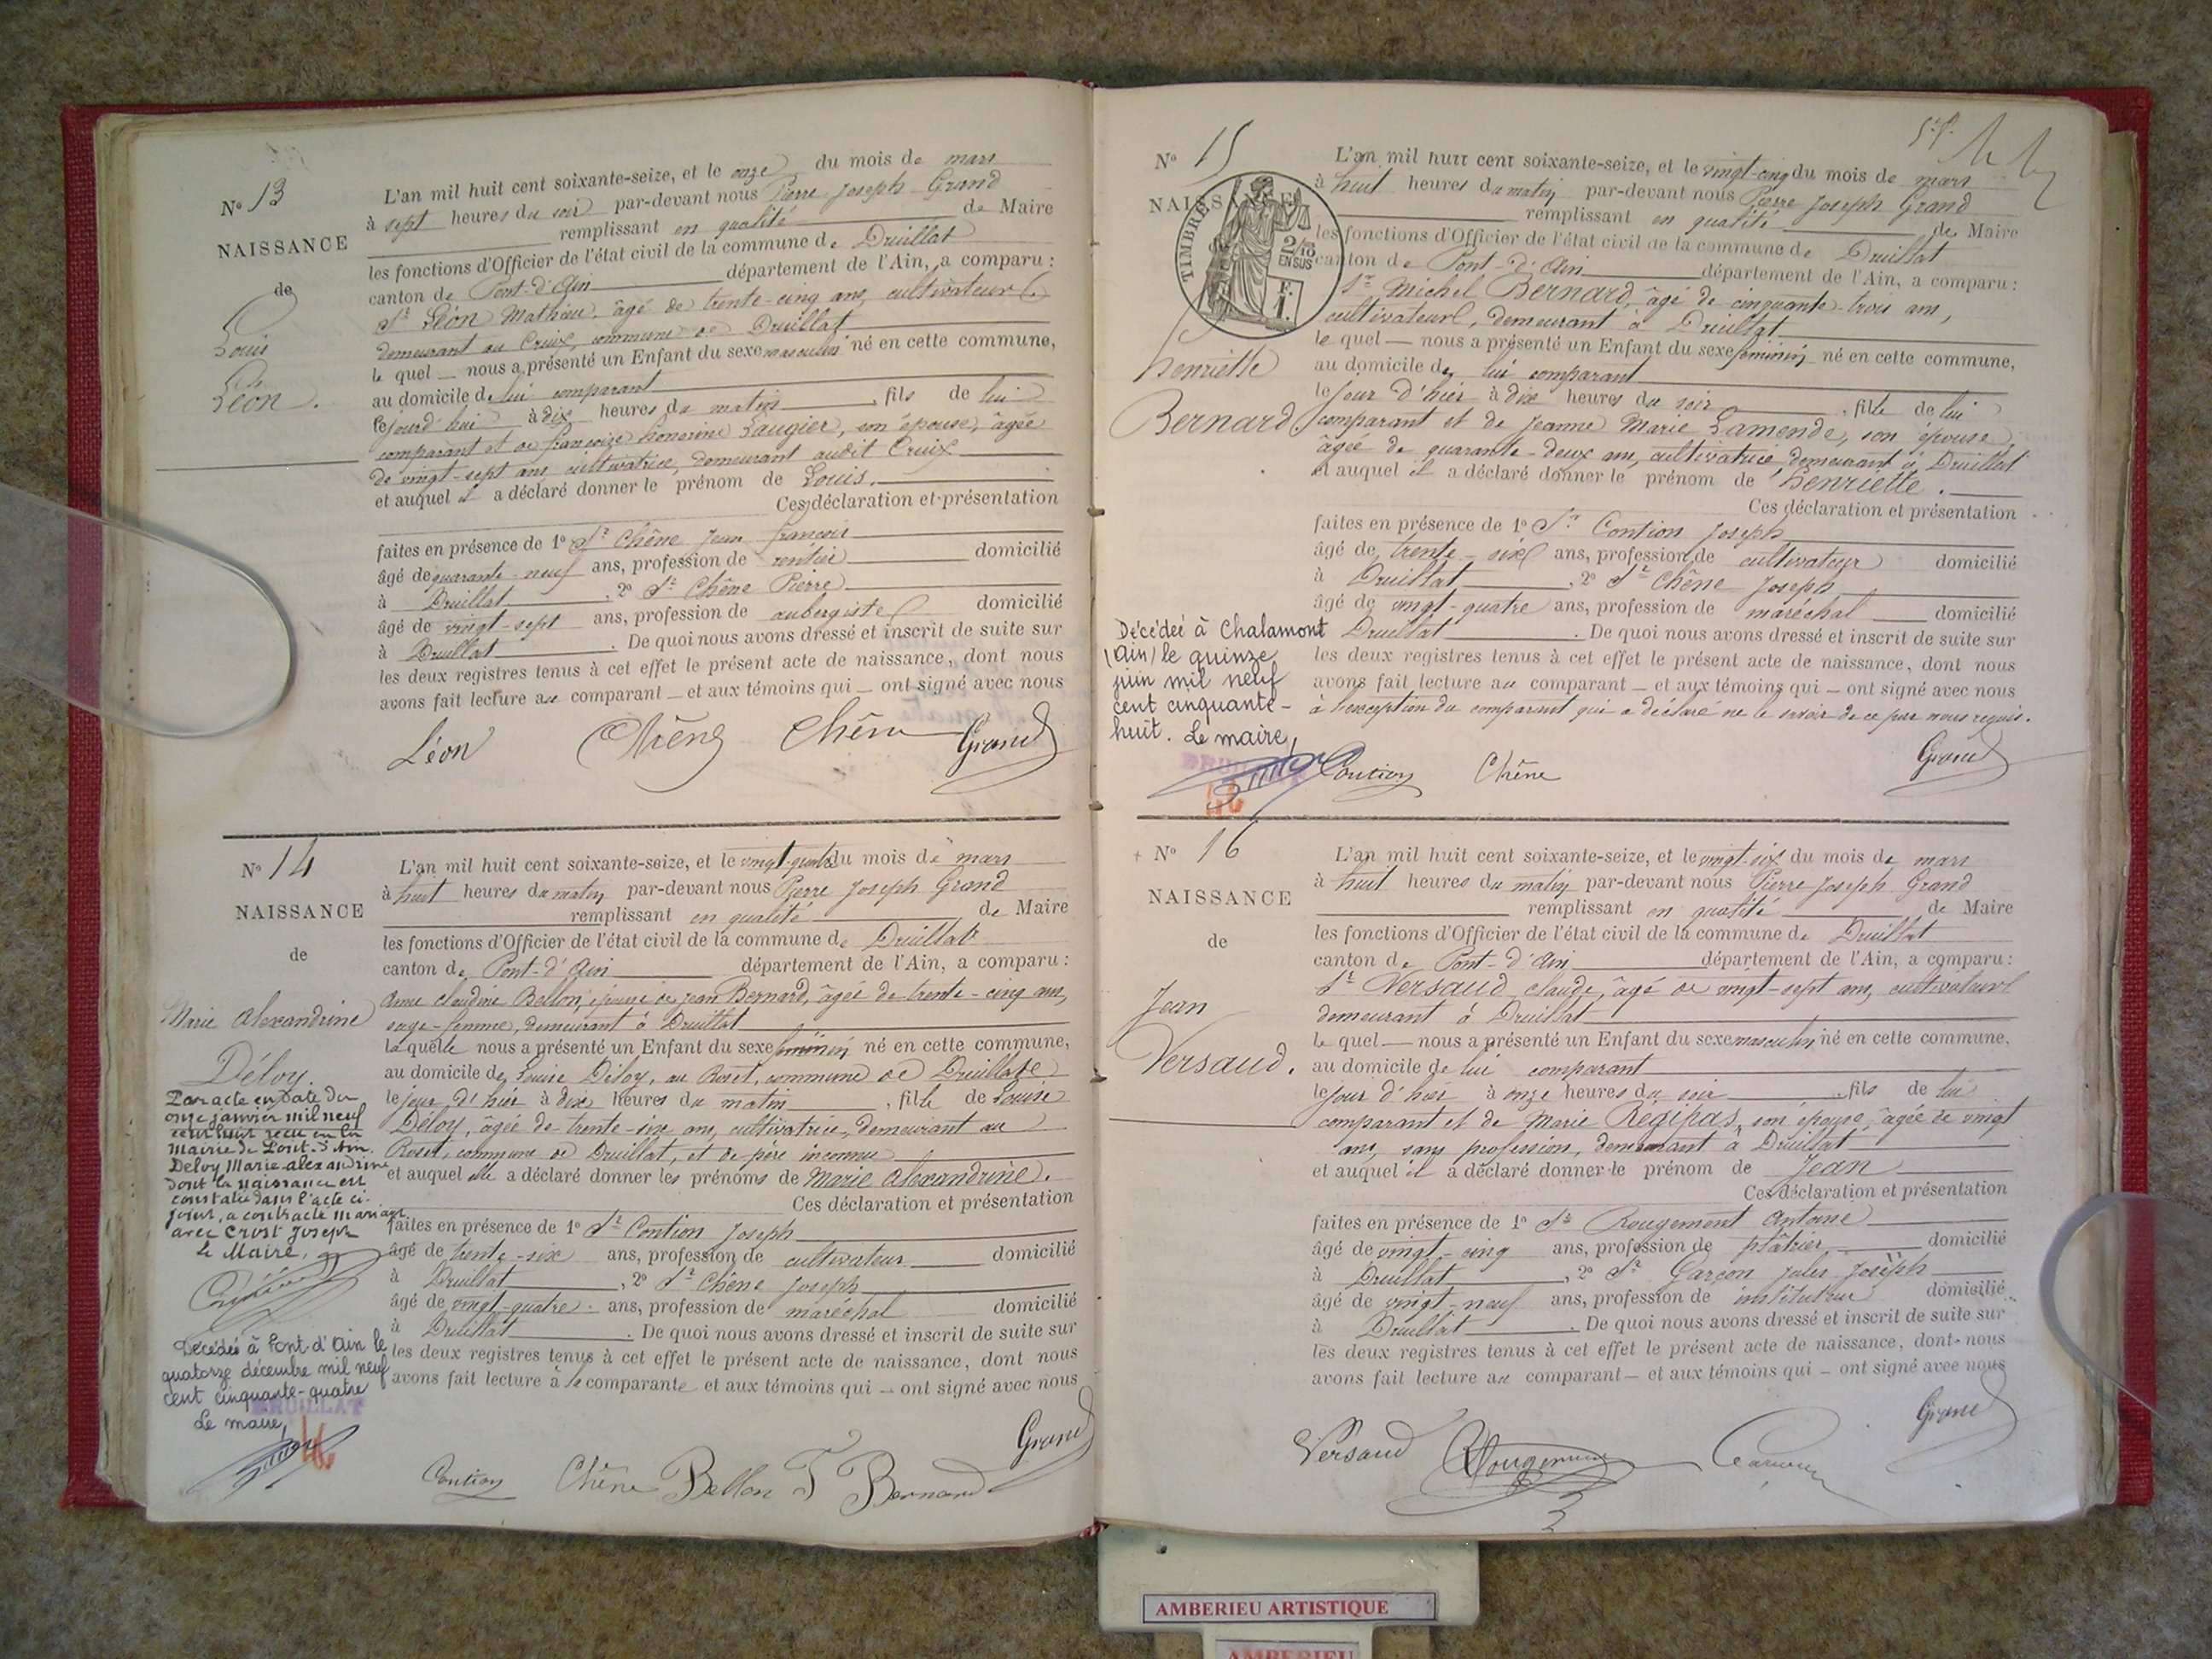 N° 13
NAISSANCE
de
Louis
Léon.
L'an mil huit cent soixante-seize, et le onze du mois de mars
à sept heures du soir par-devant nous Pierre Joseph Grand
remplissant en qualité de Maire
les fonctions d'Officier de l'état civil de la commune de Druillat
canton de Pont-d'Ain département de l'Ain, a comparu :
Sr Léon Mathieu, âgé de trente-cinq ans, cultivateur
demeurant au Cruix, commune de Druillat
le quel nous a présenté un Enfant du sexe masculin né en cette commune,
au domicile de lui comparant
cejourd'hui à dix heures du matin, fils de lui
comparant et de françoise honorine Laugier, son épouse, âgée
de vingt-sept ans cultivatrice, demeurant audit Cruix
et auquel il a déclaré donner le prénom de Louis.
Ces déclaration et présentation
faites en présence de 1° Sr Chêne Jean françois
âgé de quarante-neuf ans, profession de rentier domicilié
à Druillat, 2° Sr Chêne Pierre
âgé de vingt-sept ans, profession de aubergiste domicilié
à Druillat. De quoi nous avons dressé et inscrit de suite sur
les deux registres tenus à cet effet le présent acte de naissance, dont nous
avons fait lecture au comparant et aux témoins qui ont signé avec nous
Léon Chêne Chêne Grand
N° 14
NAISSANCE
de
Marie Alexandrine
Déloy.
Par acte en date du
onze janvier mil neuf
cent huit reçu en la
mairie de Pont-d'Ain
Deloy Marie alexandrine
dont la naissance est
constatée dans l'acte ci-
joint, a contracté mariage
avec Crost Joseph
Le Maire,
Décédée à Pont d'Ain le
quatorze décembre mil neuf
cent cinquante-quatre
Le maire,
DRUILLAT
L'an mil huit cent soixante-seize, et le vingt-quatre du mois de mars
à huit heures du matin par-devant nous Pierre Joseph Grand
remplissant en qualité de Maire
les fonctions d'Officier de l'état civil de la commune de Druillat
canton de Pont-d'Ain département de l'Ain, a comparu :
Anne claudine Bellon, épouse de Jean Bernard, âgée de trente-cinq ans,
sage-femme, demeurant à Druillat
laquelle nous a présenté un Enfant du sexe féminin né en cette commune,
au domicile de Louise Déloy, au Roset, commune de Druillat
le jour d'hier à dix heures du matin, fille de Louise
Déloy, âgée de trente-six ans, cultivatrice, demeurant au
Roset, commune de Druillat, et de père inconnu
et auquel elle a déclaré donner les prénoms de Marie Alexandrine.
Ces déclaration et présentation
faites en présence de 1° Sr Contion Joseph
âgé de trente-six ans, profession de cultivateur domicilié
à Druillat, 2° Sr Chêne Joseph
âgé de vingt-quatre ans, profession de maréchal domicilié
à Druillat. De quoi nous avons dressé et inscrit de suite sur
les deux registres tenus à cet effet le présent acte de naissance, dont nous
avons fait lecture à la comparante et aux témoins qui ont signé avec nous
Grand
Contion Chêne Bellon F Bernard
N° 15
NAISSANCE
TIMBRES
2/10
EN SUS
henriette
Bernard
Décédée à Chalamont
(Ain) le quinze
juin mil neuf
cent cinquante-
huit. Le maire,
DRUILLAT
L'an mil huit cent soixante-seize, et le vingt-cinq du mois de mars
à huit heures du matin par-devant nous Pierre Joseph Grand
remplissant en qualité de Maire
les fonctions d'Officier de l'état civil de la commune de Druillat
canton de Pont-d'Ain département de l'Ain, a comparu :
Sr Michel Bernard, âgé de cinquante-trois ans,
cultivateur, demeurant à Druillat
le quel nous a présenté un Enfant du sexe féminin né en cette commune,
au domicile de lui comparant
le jour d'hier à dix heures du soir, fille de lui
comparant et de Jeanne Marie Lamende, son épouse,
âgée de quarante-deux ans, cultivatrice demeurant à Druillat
et auquel il a déclaré donner le prénom de henriette.
Ces déclaration et présentation
faites en présence de 1° Sr Contion Joseph
âgé de trente-six ans, profession de cultivateur domicilié
à Druillat, 2° Sr Chêne Joseph
âgé de vingt-quatre ans, profession de maréchal domicilié
Druillat. De quoi nous avons dressé et inscrit de suite sur
les deux registres tenus à cet effet le présent acte de naissance, dont nous
avons fait lecture au comparant et aux témoins qui ont signé avec nous
à l'exception du comparant qui a déclaré ne le savoir de ce par nous requis.
Contion Chêne Grand
N° 16
NAISSANCE
de
Jean
Versaud.
L'an mil huit cent soixante-seize, et le vingt-six du mois de mars
à huit heures du matin par-devant nous Pierre Joseph Grand
remplissant en qualité de Maire
les fonctions d'Officier de l'état civil de la commune de Druillat
canton de Pont-d'Ain département de l'Ain, a comparu :
Sr Versaud claude, âgé de vingt-sept ans, cultivateur
demeurant à Druillat
le quel nous a présenté un Enfant du sexe masculin né en cette commune,
au domicile de lui comparant
le jour d'hier à onze heures du soir, fils de lui
comparant et de Marie Régipas, son épouse, âgée de vingt
ans, sans profession, demeurant à Druillat
et auquel il a déclaré donner le prénom de Jean
Ces déclaration et présentation
faites en présence de 1° Sr Rougemont Antoine
âgé de vingt-cinq ans, profession de plâtrier domicilié
à Druillat, 2° Sr Garçon Jules Joseph
âgé de vingt-neuf ans, profession de instituteur domicilié
à Druillat. De quoi nous avons dressé et inscrit de suite sur
les deux registres tenus à cet effet le présent acte de naissance, dont nous
avons fait lecture au comparant et aux témoins qui ont signé avec nous
Grand
Versaud Rougemont
AMBERIEU ARTISTIQUE
AMBERIEU